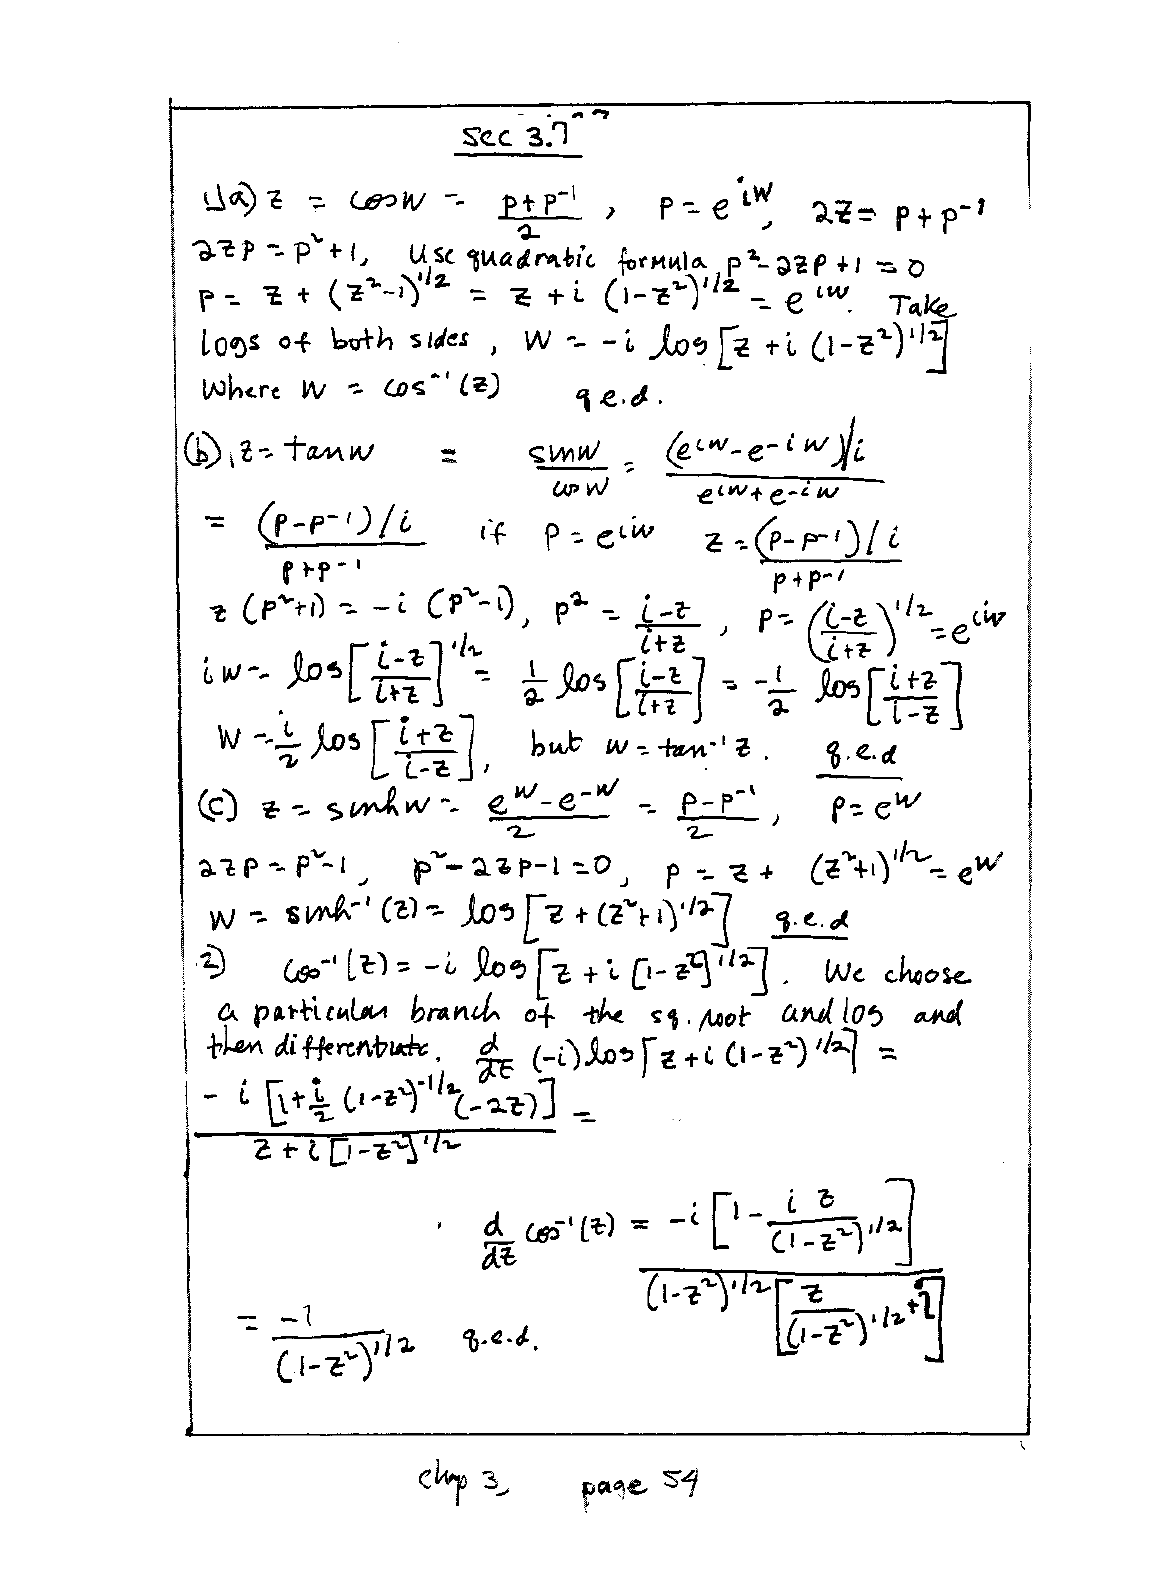 Sec 3.7
1)a) z = cos w = (p+p^-1)/2 , p = e^iw, 2z = p + p^-1
2zp = p^2+1, Use quadratic formula p^2-2zp+1 = 0
p = z + (z^2-1)^1/2 = z + i (1-z^2)^1/2 = e^iw. Take
logs of both sides, w = -i log[z + i (1-z^2)^1/2]
Where w = cos^-1(z) q.e.d.
(b), z = tan w = sin w/cos w = (e^iw-e^-iw)/i / (e^iw+e^-iw)
= (p-p^-1)/i / (p+p^-1) if p = e^iw z = (p-p^-1)/i / (p+p^-1)
z (p^2+1) = -i (p^2-1), p^2 = (i-z)/(i+z) , p = ((i-z)/(i+z))^1/2 = e^iw
iw = log[(i-z)/(i+z)]^1/2 = 1/2 log[(i-z)/(i+z)] = -1/2 log[(i+z)/(i-z)]
w = i/2 log[(i+z)/(i-z)], but w = tan^-1 z. q.e.d
(c) z = sinh w = (e^w-e^-w)/2 = (p-p^-1)/2 , p = e^w
2zp = p^2-1, p^2-2zp-1=0, p = z + (z^2+1)^1/2 = e^w
w = sinh^-1(z) = log[z + (z^2+1)^1/2] q.e.d
2) cos^-1(z) = -i log[z + i [1-z^2]^1/2]. We choose
a particular branch of the sq. root and log and
then differentiate. d/dz (-i) log[z + i (1-z^2)^1/2] =
-i [1 + i/2 (1-z^2)^-1/2 (-2z)] / (z + i [1-z^2]^1/2) =
d/dz cos^-1(z) = -i [1 - iz/(1-z^2)^1/2] / ((1-z^2)^1/2 [z/(1-z^2)^1/2 + i])
= -1/(1-z^2)^1/2 q.e.d.
chap 3, page 54